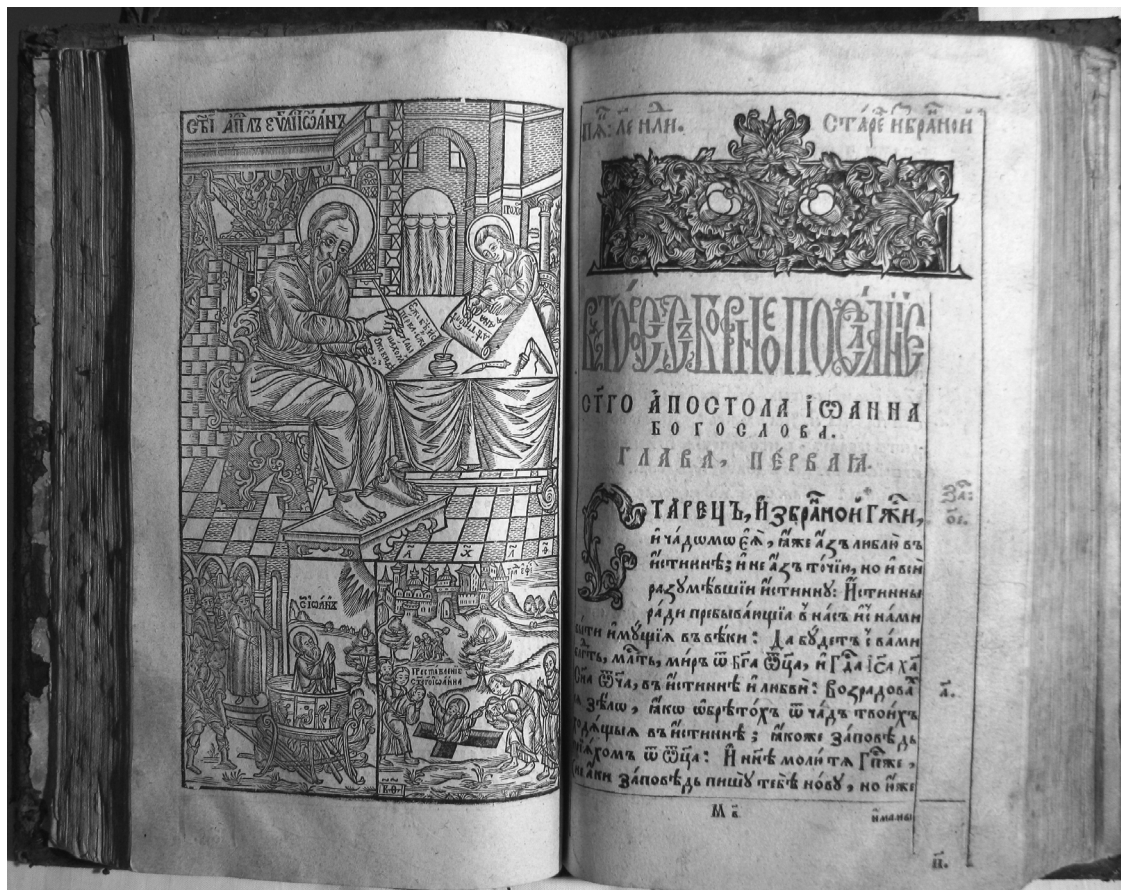 СТ҃Ы АПⷭ҇ЛЪ ЕѴⷢ҇ЛИ ІѠАНЪ
ПРОХО
С ІОАНЪ
ПРЕСТАВЛЕНІЕ
С҃ТАГО ІОАННА
Старе́й и҆збра́ннѡй
ВТОРОЕ СОБОРНОЕ ПОСЛАНІЕ
СТ҃ГО А҆ПОСТОЛА ІѠАННА
БОГОСЛОВА.
ГЛАВА, ПЕ́РВАѦ.
СТАРЕЦЪ, И҆збра́ннѡй Гж҃и,
и҆ ча́дѡмъ є҆ѧ̀, ꙗ҆́же а҆́зъ люблю̀ въ
и҆́стиннѣ; и҆ не а҆́зъ то́чїю, но и҆ всѝ
разꙋмѣ́вшїи и҆́стиннꙋ: И҆́стинны
ра́ди пребыва́ющїѧ в̾ на́съ и҆ с̾ на́ми
бы́ти и҆мꙋ́щїѧ въ вѣ́ки: Да бꙋ́детъ с̾ ва́ми
блгⷣть, млⷭ҇ть, ми́ръ ѿ бг҃а ѻ҆ц҃а̀, и҆ гдⷭ҇а і҆и҃са хⷭ҇а̀
сн҃а ѻ҆́ч҃а, въ и҆́стиннѣ и҆ любвѝ: Возра́довахъ
сѧ ѕѣлѡ̀, ꙗ҆́кѡ ѡ҆брѣто́хъ ѿ ча́дъ твои́хъ
ходѧ́щыѧ въ и҆́стиннѣ; ꙗ҆́коже за́повѣдь
прїѧ́хомъ ѿ ѻ҆ц҃а̀: И҆ нн҃ѣ молю́ тѧ Гп҃же,
не а҆́ки за́повѣдь пишꙋ̀ тебѣ̀ но́вꙋ, но ю҆́же
и҆́мамы